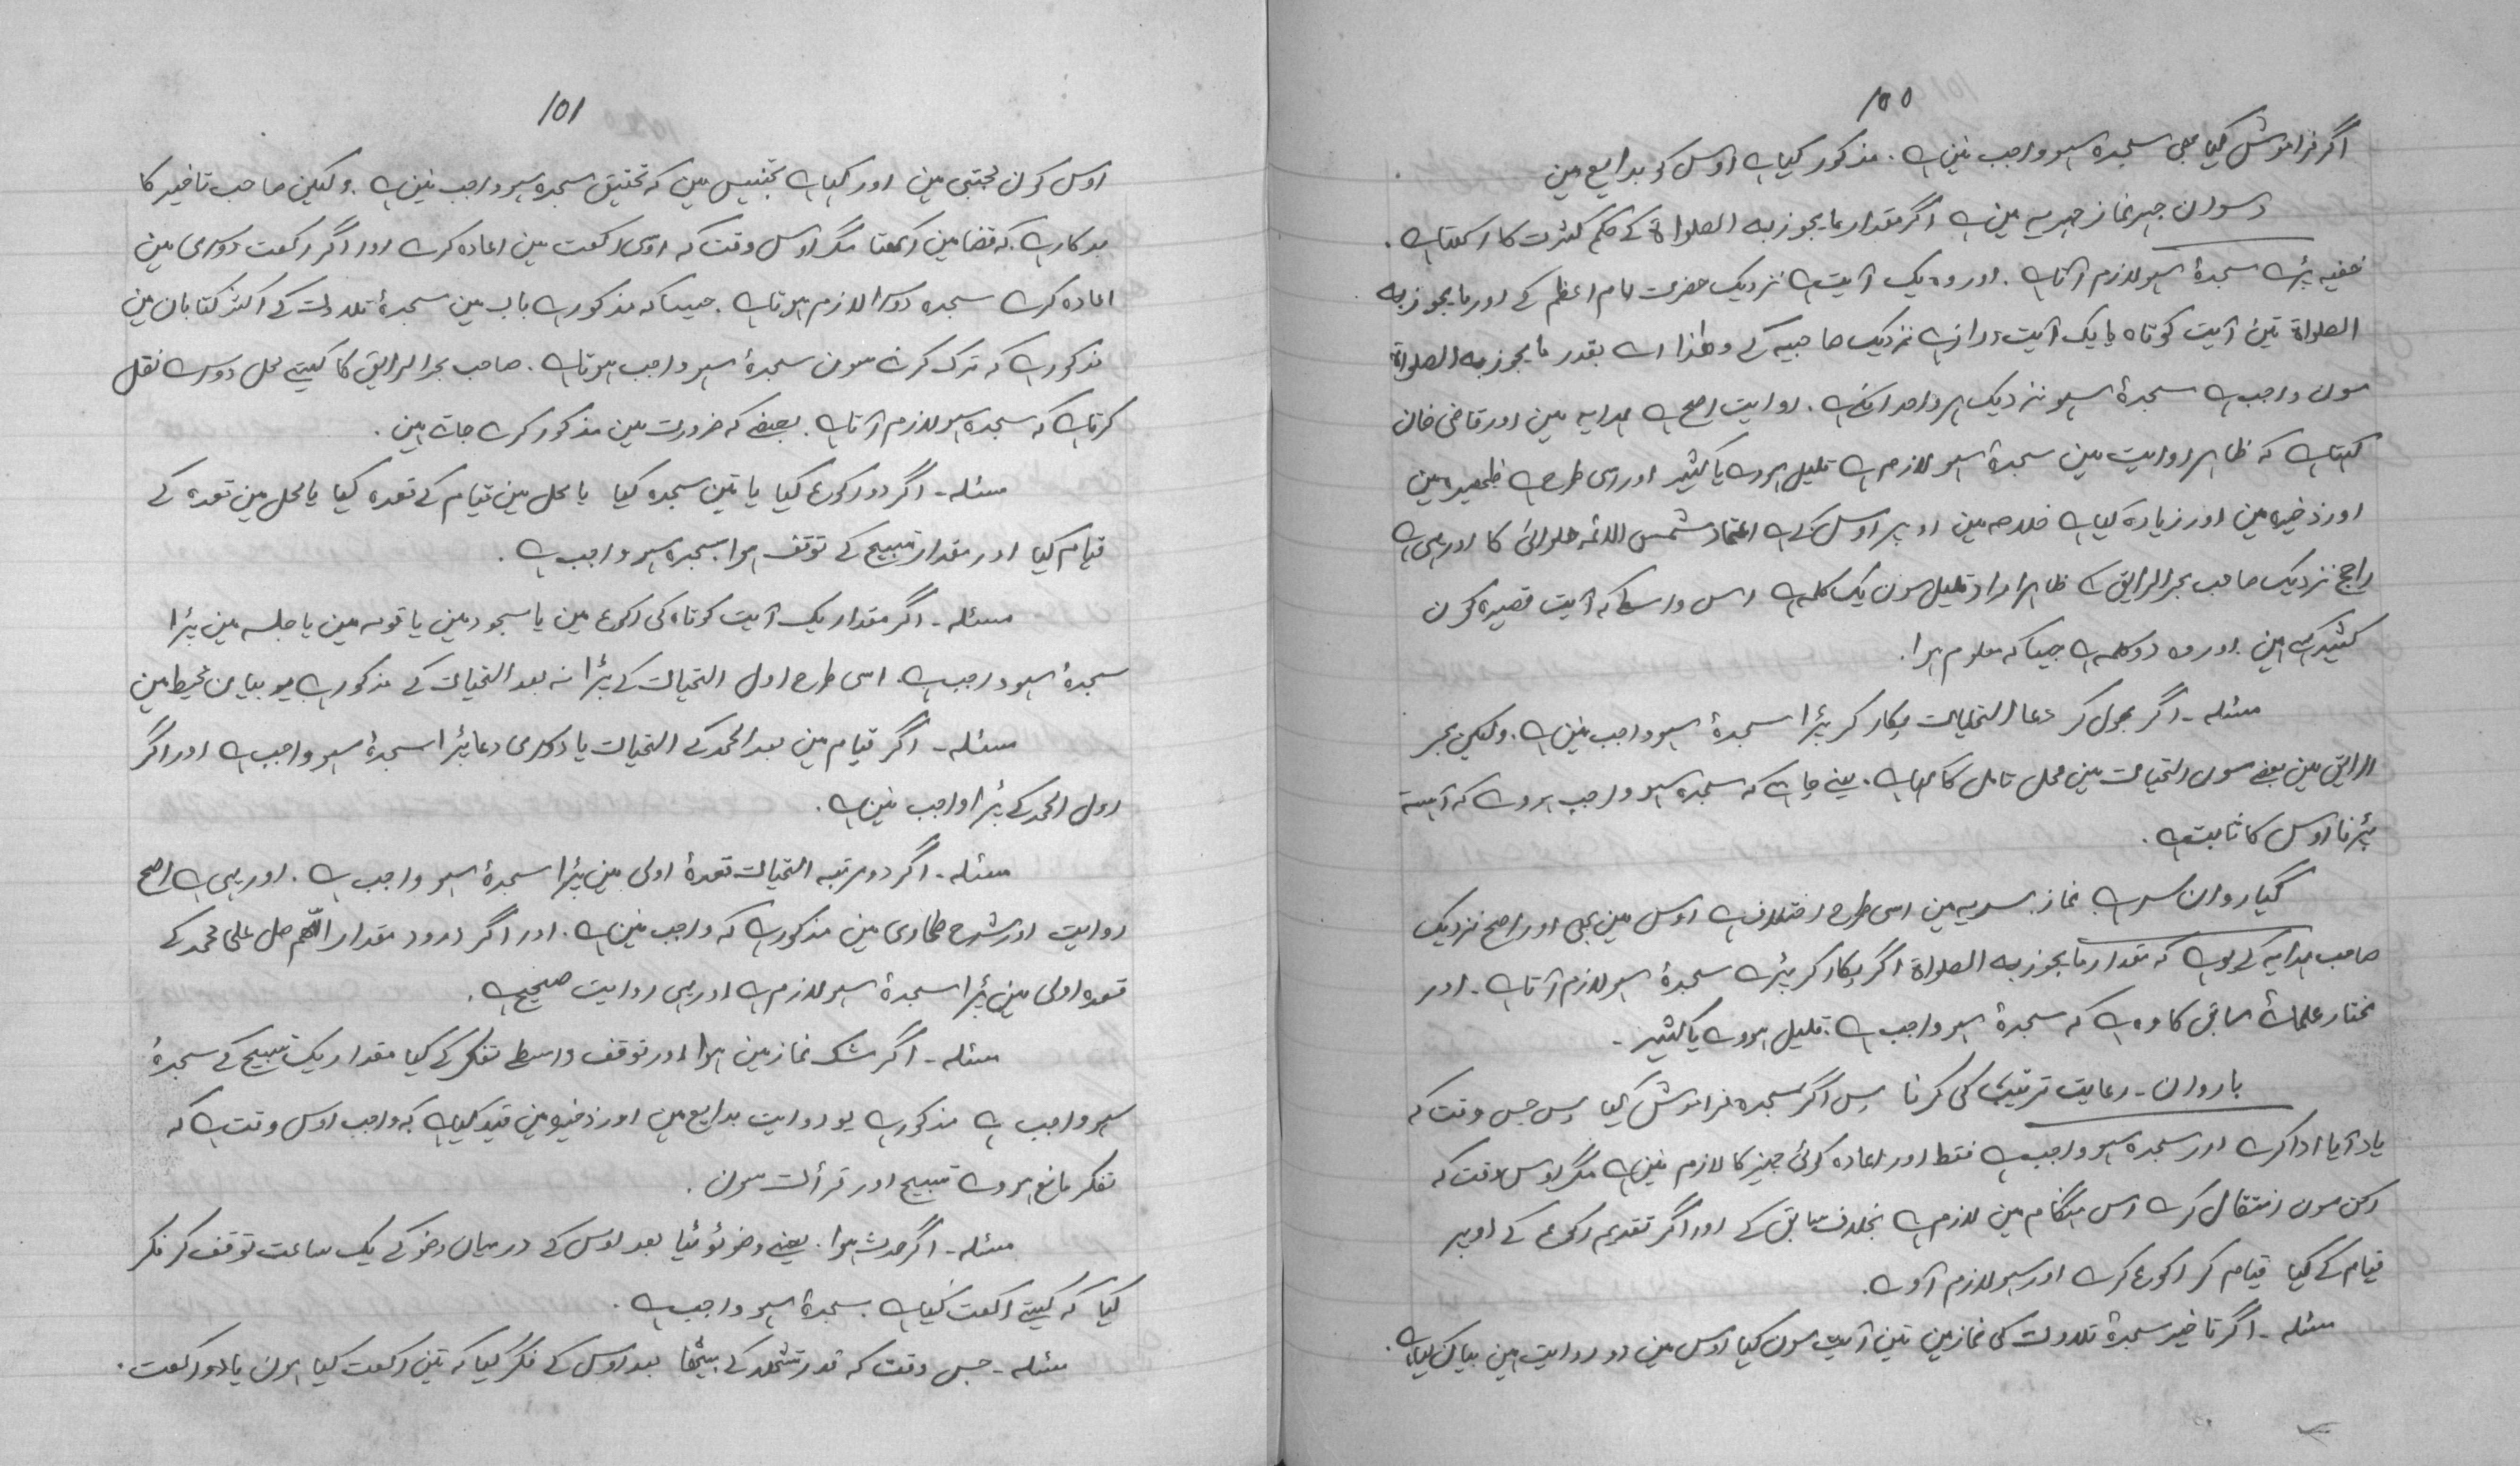 100
اگر فراموش کیا بھی سجدہ سہو واجب نین ہے. مذکور کیا ہے اوس کو بدایع مین
دسواں جہر نماز جہریہ مین ہے اگر مقدار ما یجوز بہ الصلواۃ کے حکم کثرت کا رکھتا ہے.
خفیہ پڑے سجدۂ سہو لازم آتا ہے. اور وہ یک آیت ہے نزدیک حضرت امام اعظم کے اور ما یجوز بہ
الصلواۃ تین آیت کوتاہ یا یک آیت دراز ہے نزدیک صاحبیہ کے وھذا اے بقدر ما یجوز بہ الصلواۃ
سون واجب ہے سجدۂ سہو نزدیک ہر واحد ان کے. روایت اصح ہے ہدایہ مین اور قاضی خان
کہتا ہے کہ ظاہر روایت مین سجدۂ سہو لازم ہے قلیل ہووے یا کثیر اور اسی طرح ہے ظہیریہ مین
اور ذخیرہ مین اور زیادہ کیا ہے خلاصہ مین اوپر اوس کے ہے اعتماد شمس الائمہ حلوائی کا اور یہی ہے
راجح نزدیک صاحب بحر الرایق کے ظاہرا مراد قلیل سون یک کلمہ ہے اس واسطے کہ آیت قصیرہ کون
کثیر کہے ہین. اور وہ دو کلمہ ہے جیسا کہ معلوم ہوا.
مسئلہ - اگر بھول کر دعا التحیات پکار کر پڑا سجدۂ سہو واجب نین ہے. ولیکن بحر
الرایق مین بعضے سون التحیات مین محل تامل کا کہا ہے. یعنے چاہے کہ سجدہ سہو واجب ہووے کہ آہستہ
پڑنا اوس کا ثابت ہے.
گیارواں سر ہے نماز سریہ مین اسی طرح اختلاف ہے اوس مین بھی اور اصح نزدیک
صاحب ہدایہ کے یو ہے کہ مقدار ما یجوز بہ الصلواۃ اگر پکار کر پڑے سجدۂ سہو لازم آتا ہے - اور
مختار علمائے سابق کا وہ ہے کہ سجدۂ سہو واجب ہے. قلیل ہووے یا کثیر -
بارواں - رعایت ترتیب کی کرنا پس اگر سجدہ فراموش کیا پس جس وقت کہ
یاد آیا ادا کرے اور سجدہ سہو واجب ہے فقط اور اعادہ کوئی چیز کا لازم نین ہے مگر اوس وقت کہ
رکن سون انتقال کرے اس ہنگام مین لازم ہے بخلاف سابق کے اور اگر تقدیم رکوع کے اوپر
قیام کے کیا قیام کر رکوع کرے اور سہو لازم آوے.
مسئلہ - اگر تاخیر سجدۂ تلاوت کی نماز مین تین آیت سون کیا اوس مین دو روایت ہین بیان کیا ہے.
101
اوس کون مجتبی مین اور کہا ہے تجنیس مین کہ تحقیق سجدہ سہو واجب نین ہے. ولیکن صاحب تاخیر کا
بدکار ہے. کہ قضا مین رکھتا مگر اوس وقت کہ اوسی رکعت مین اعادہ کرے اور اگر رکعت دوسری مین
اعادہ کرے سجدہ دوسرا لازم ہوتا ہے. جیسا کہ مذکور ہے باب مین سجدۂ تلاوت کے اکثر کتابان مین
مذکور ہے کہ ترک کرنے سون سجدۂ سہو واجب ہوتا ہے. صاحب بحر الرایق کا کیتے محل دوسرے نقل
کرتا ہے کہ سجدہ سہو لازم آتا ہے. بعضے کہ ضرورت مین مذکور کرے جاتے ہین.
مسئلہ - اگر دو رکوع کیا یا تین سجدہ کیا یا محل مین قیام کے قعدہ کیا یا محل مین قعدہ کے
قیام کیا اور مقدار تسبیح کے توقف ہوا سجدہ سہو واجب ہے.
مسئلہ - اگر مقدار یک آیت کوتاہ کی رکوع مین یا سجود مین یا قومہ مین یا جلسہ مین پڑا
سجدۂ سہو واجب ہے. اسی طرح اول التحیات کے پڑا نہ بعد التحیات کے مذکور ہے یو بیان محیط مین
مسئلہ - اگر قیام مین بعد الحمد کے التحیات یا دوسری دعا پڑا سجدۂ سہو واجب ہے اور اگر
اول الحمد کے پڑا واجب نین ہے.
مسئلہ - اگر دو مرتبہ التحیات قعدۂ اولی مین پڑا سجدۂ سہو واجب ہے. اور یہی ہے اصح
روایت اور شرح طحاوی مین مذکور ہے کہ واجب نین ہے. اور اگر درود مقدار اللّٰھم صل علی محمد کے
قعدہ اولی مین پڑا سجدۂ سہو لازم ہے اور یہی روایت صحیح ہے.
مسئلہ - اگر شک نماز مین ہوا اور توقف واسطے تفکر کے کیا مقدار یک تسبیح کے سجدۂ
سہو واجب ہے مذکور ہے یو روایت بدایع مین اور ذخیرہ مین قید کیا ہے کہ واجب اوس وقت ہے کہ
تفکر مانع ہووے تسبیح اور قرأت سون.
مسئلہ - اگر حدث ہوا. یعنے وضو ٹوٹیا بعد اوس کے درمیان وضو کے یک ساعت توقف کر فکر
کیا کہ کیتے رکعت کیا ہے. سجدۂ سہو واجب ہے.
مسئلہ - جس وقت کہ قدر تشھد کے بیٹھا بعد اوس کے فکر کیا کہ تین رکعت کیا ہون یا دو رکعت.